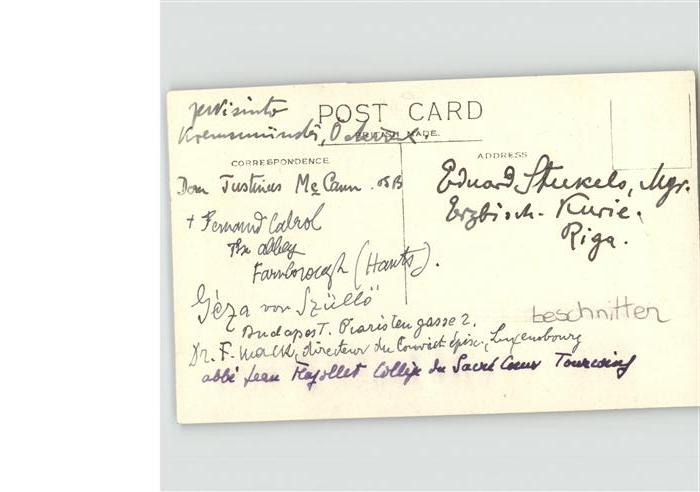 POST CARD
Kremsmünster,
MADE.
CORRESPONDENCE
ADDRESS
Dom Justinus McCann. OSB
+ Fernand Cabrol
The abbey
Farnborough (Hants).
Géza von Szüllö
Budapest. Piaristengasse 2.
Dr. F. Mack, directeur du Convict épisc., Luxembourg
abbé Jean Collège du Sacré Coeur Tourcoing
Eduard Stukels, Mgr.
Erzbisch. Kurie.
Riga.
beschnitten